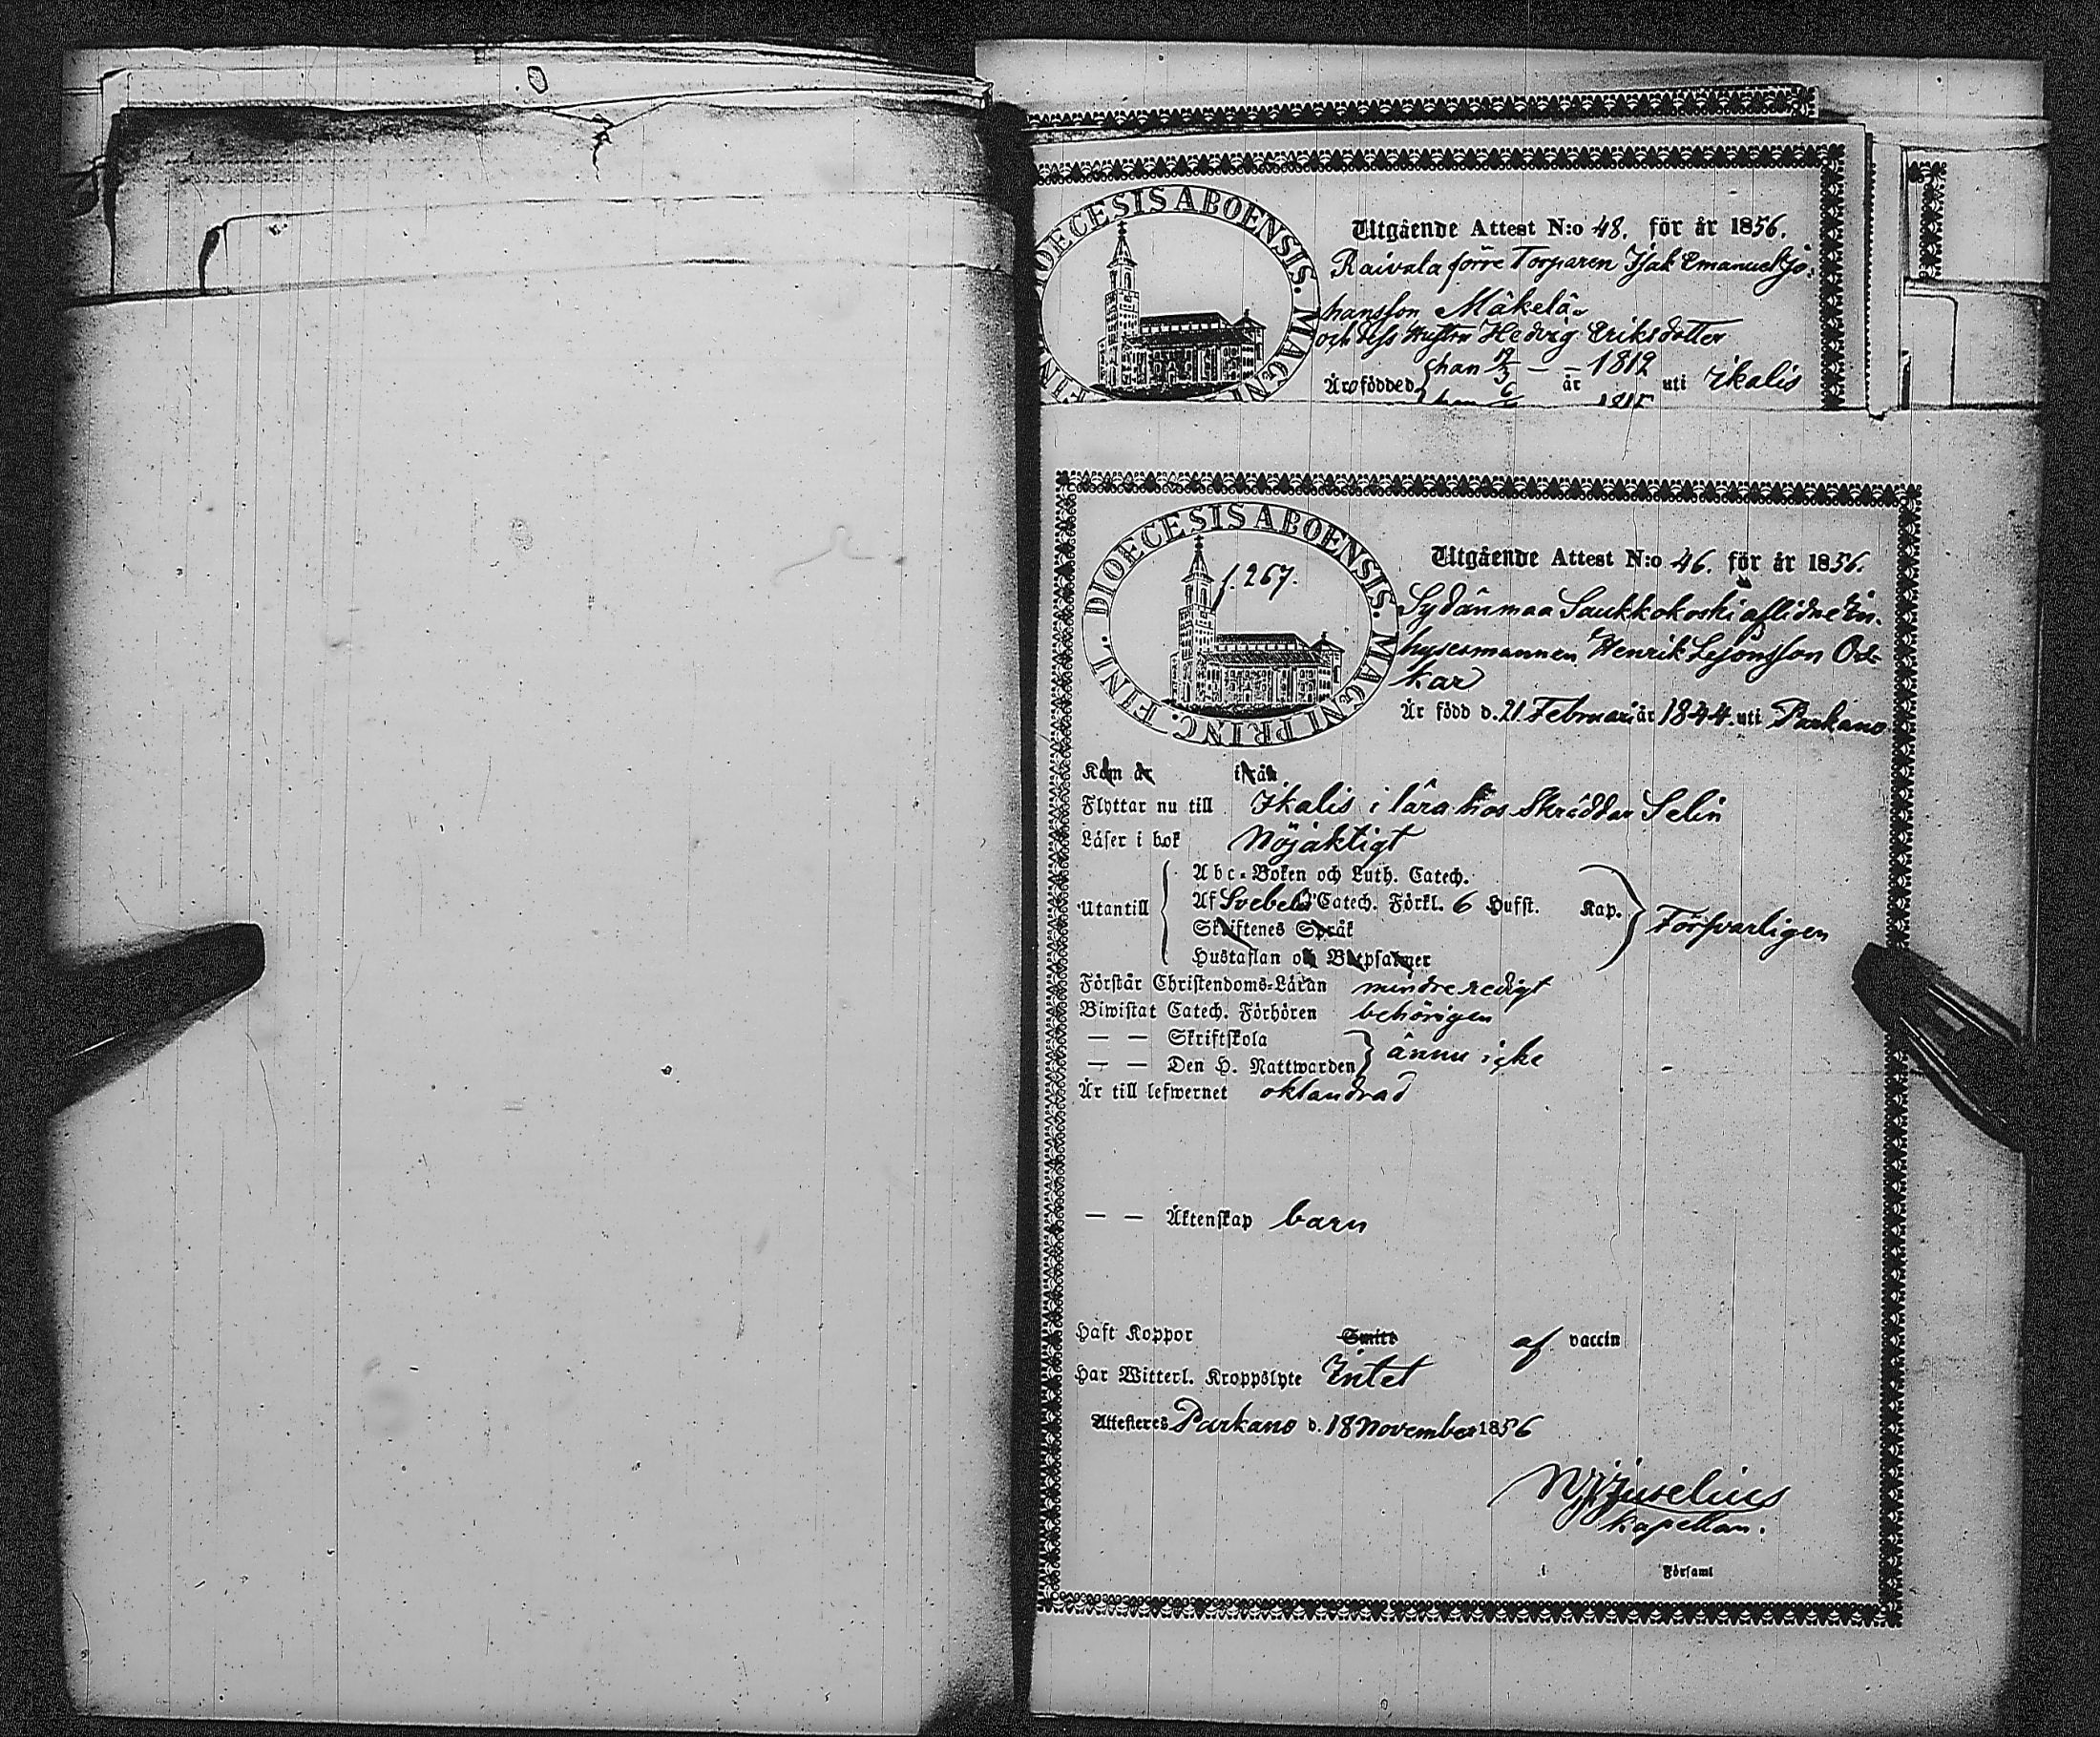 DIOECESIS ABOENSIS. MAGNI
FINL
Utgående Attest N:o 48. för år 1856.
Raivala förre Torparen Isak Emanuel Jo:
hansson Mäkelä
och dess Hustru Hedvig Eriksdotter
Äro födde d. han 19/3 — — 1812
år uti Ikalis
6
DIOECESIS ABOENSIS. MAGNI PRINC. FINL.
f. 267.
Utgående Attest N:o 46. för år 1856.
Sydänmaa Saukkokoski aflidne In-
hysesmannen Henrik
kar
Är född d. 21 Februari år 1844. uti Parkano
Kom år ifrån
Flyttar nu till Ikalis i lära hos Skräddar Selin
Läser i bok Nöjaktigt
Utantill
Abc-Boken och Luth. Catech.
Af Svebelii Catech. Förkl. 6 Hufst. Kap. Försvarligen
Skriftenes Språk
Hustaflan och Botpsalmer
Förstår Christendoms-Läran mindre redigt
Biwistat Catech. Förhören behörigen
— — Skriftskola
— — Den H. Nattwarden ännu icke
Är till lefwernet oklandrad
— — Äktenskap barn
Haft Koppor Smitt af vaccin
Har Witterl. Kroppslyte Intet
Attesteres Parkano d. 18 November 1856
Juselius
Kapellan.
i Församl